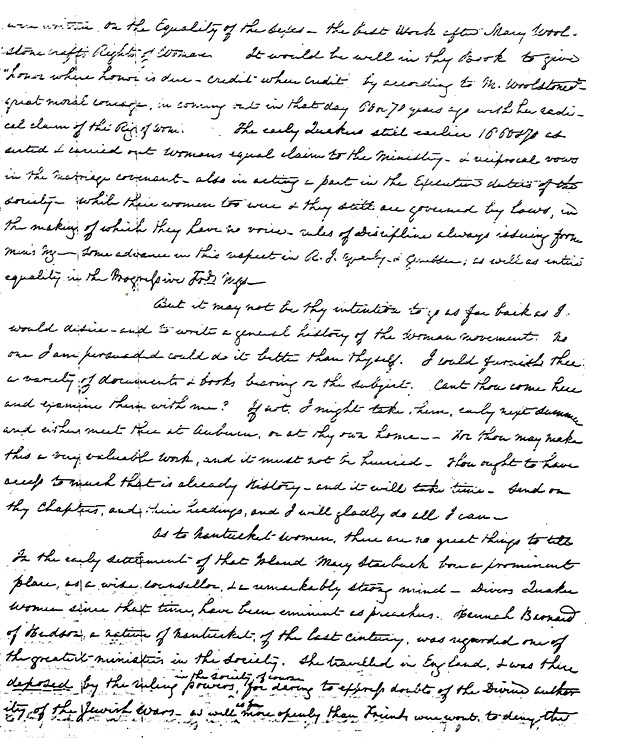 ever written on the Equality of the Sexes – the best Work after Mary Wool-
stonecrafts Rights of Woman It would be well in thy Book to give
"honor where honor is due – credit where credit by according to M. Woolstonect
great moral courage, in coming out in that day 60 or 70 years ago with her radi-
cal claim of the Rig. of wom. The early Quakers still earlier 1660 & 70 as
serted & carried out Womans equal claims to the Ministry – & reciprocal vows
in the marriage covenant – also in acting a part in the Executive duties of the
society – while their women too were & they still are governed by laws, in
the making of which they have no voice – rules of Discipline always issuing from
men's Mg – some advance in this respect in R. I. Yearly – & Genessee; as well as entire
equality in the Progressive Frds Mgs –
But it may not be thy intention to go as far back as I
would desire – and to write a general history of the Woman movement. No
one I am persuaded could do it better than thyself. I could furnish thee
a variety of documents & books bearing on the subject. Cant thou come here
and examine them with me? If not, I might take them, early next summer
and either meet thee at Auburn, or at thy own home – – For thou may make
this a very valuable work, and it must not be hurried – Thou ought to have
access to much that is already History – and it will take time – Send on
thy Chapters, and their headings, and I will gladly do all I can –
As to Nantucket women, there are no great things to tell
In the early settlement of that Island Mary Starbuck bore a prominent
place, as a wise counsellor, & a remarkably strong mind – Divers Quaker
women since that time, have been eminent as preachers. Hannah Barnard
of Hudson, a native of Nantucket, of the last century, was regarded one of
the greatest ministers in the Society. She travelled in England, & was there
deposed by the ruling powers, in the society of course for daring to express doubts of the Divine author
ity of the Jewish Wars – as well as for more openly than Friends were wont, to deny, the